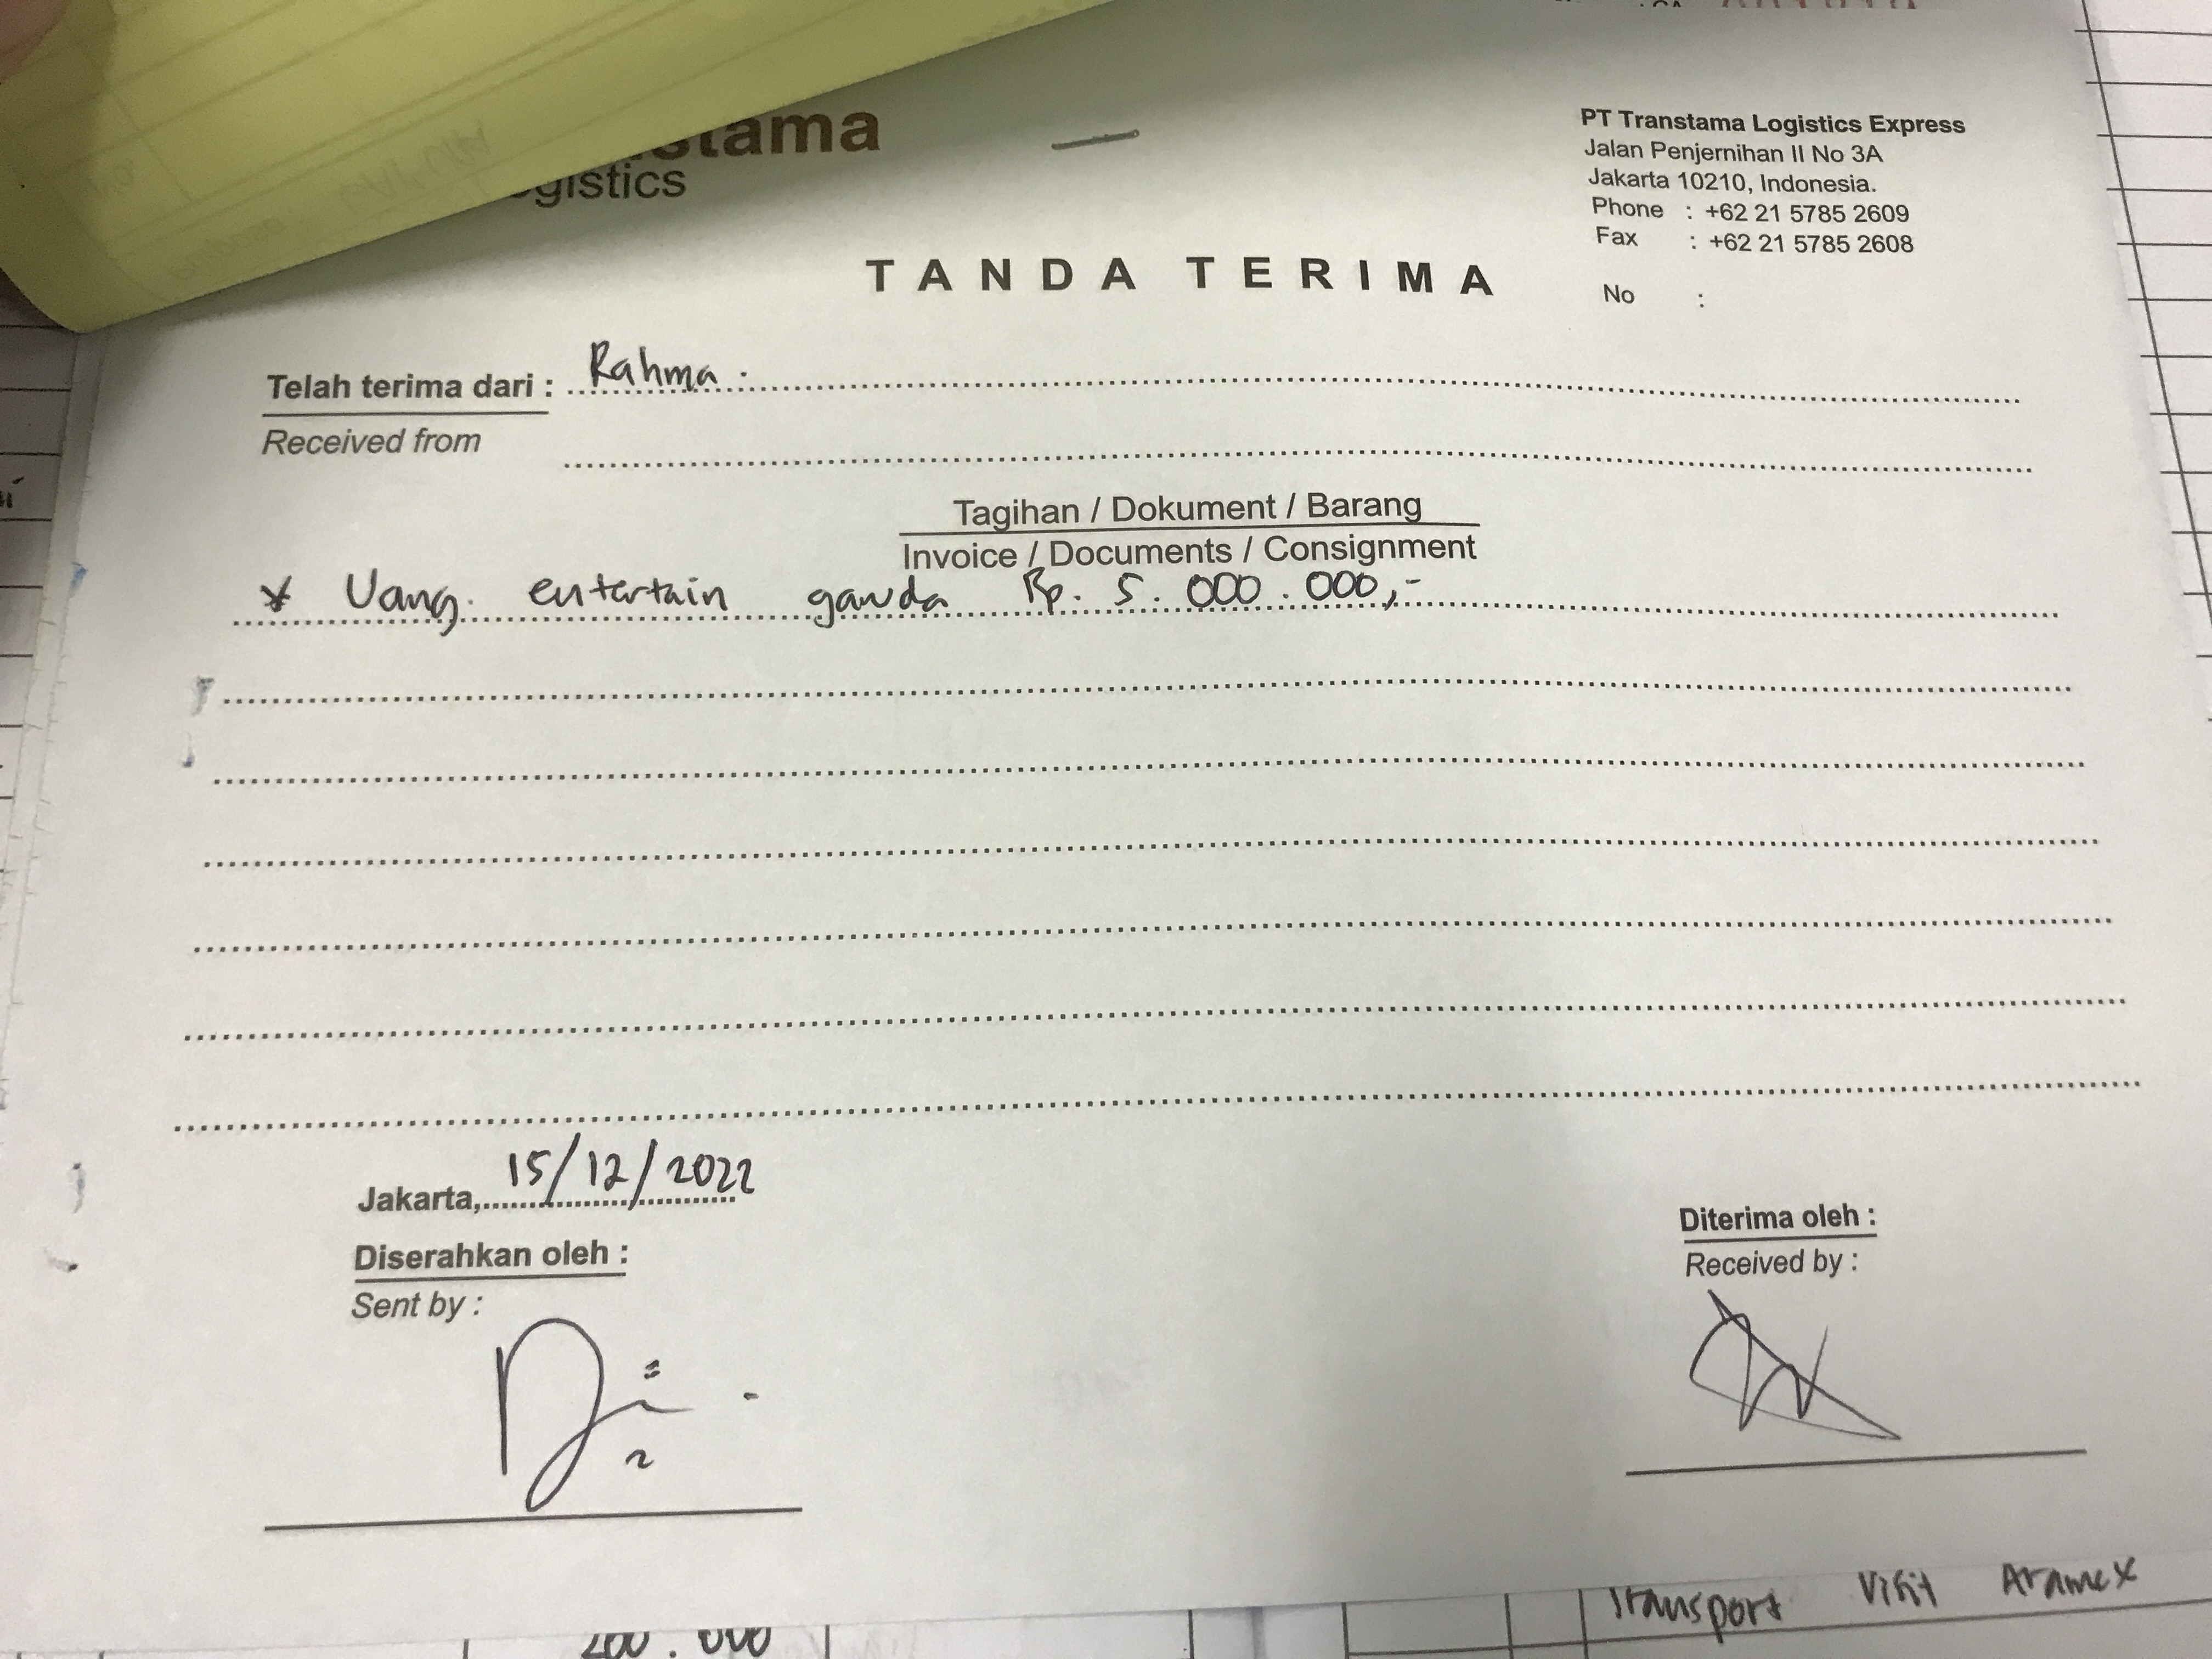 stama
gistics
PT Transtama Logistics Express
Jalan Penjernihan II No 3A
Jakarta 10210, Indonesia.
Phone : +62 21 5785 2609
Fax : +62 21 5785 2608
TANDA TERIMA
No :
Telah terima dari : Rahma.
Received from
Tagihan / Dokument / Barang
Invoice / Documents / Consignment
* Uang entertain ganda Rp. 5.000.000,-
Jakarta, 15/12/2022
Diserahkan oleh :
Sent by :
Diterima oleh :
Received by :
Transport Visit Aramex